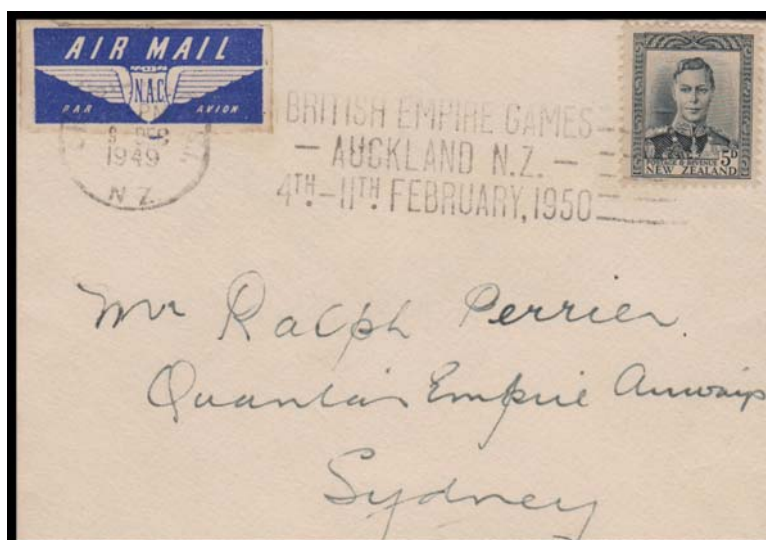 AIR MAIL
N.A.C.
PAR AVION
DEC
1949
N Z.
BRITISH EMPIRE GAMES
— AUCKLAND N.Z. —
4TH.-11TH. FEBRUARY, 1950
5D
POSTAGE & REVENUE
NEW ZEALAND
Mr Ralph Perrier.
Quantas Empire Airways
Sydney